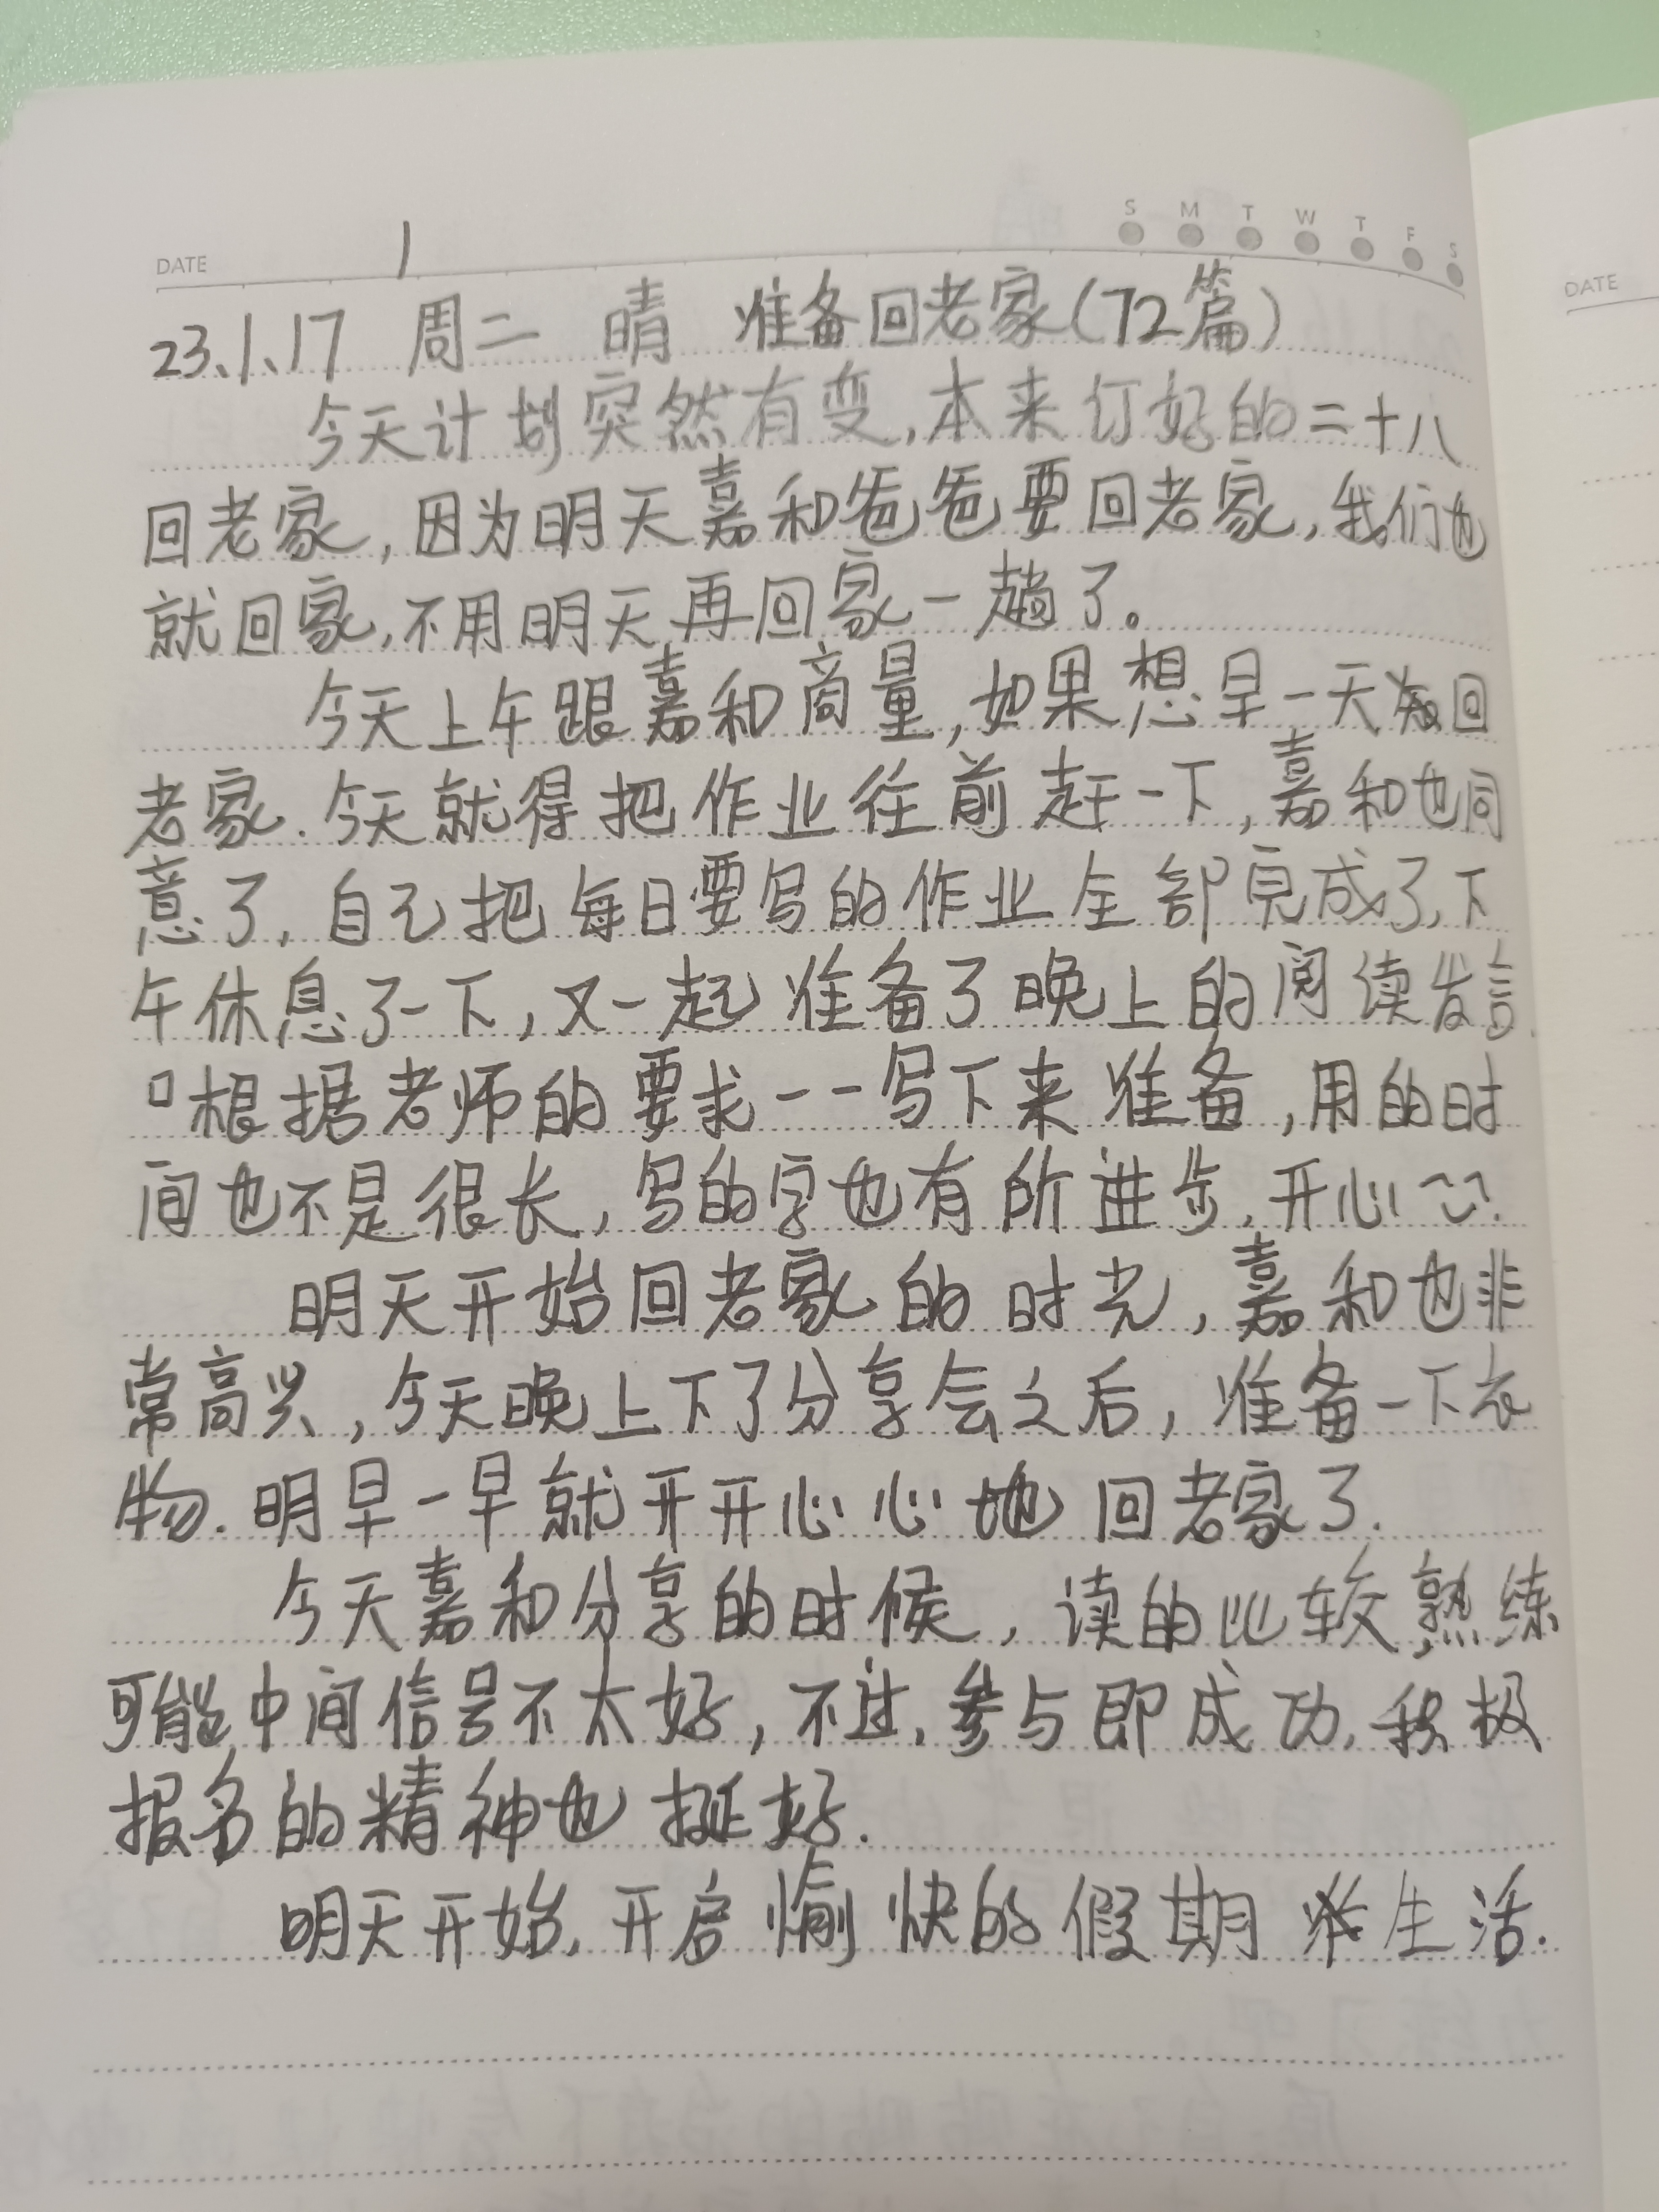 S M T W T F S
DATE 1
DATE
23、1、17 周二 晴 准备回老家(72篇)
今天计划突然有变,本来订好的二十八
回老家,因为明天嘉和爸爸要回老家,我们也
就回家,不用明天再回家一趟了。
今天上午跟嘉和商量,如果想早一天回
老家.今天就得把作业往前赶一下,嘉和也同
意了,自己把每日要写的作业全部完成了,下
午休息了一下,又一起准备了晚上的阅读发言.
根据老师的要求一一写下来准备,用的时
间也不是很长,写的字也有所进步,开心
明天开始回老家的时光,嘉和也非
常高兴,今天晚上下了分享会之后,准备一下衣
物.明早一早就开开心心地回老家了.
今天嘉和分享的时候,读的比较熟练
可能中间信号不太好,不过,参与即成功,积极
报名的精神也挺好.
明天开始,开启愉快的假期生活.